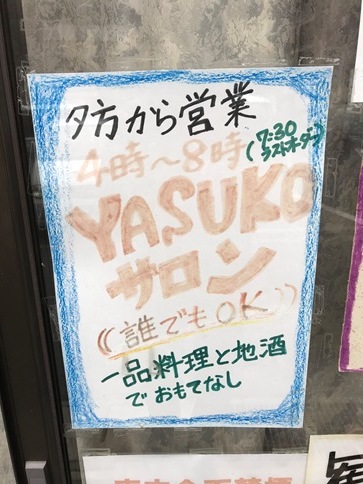 夕方から営業
4時～8時(7:30
ラストオーダー)
YASUKO
サロン
((誰でもOK))
一品料理と地酒
でおもてなし